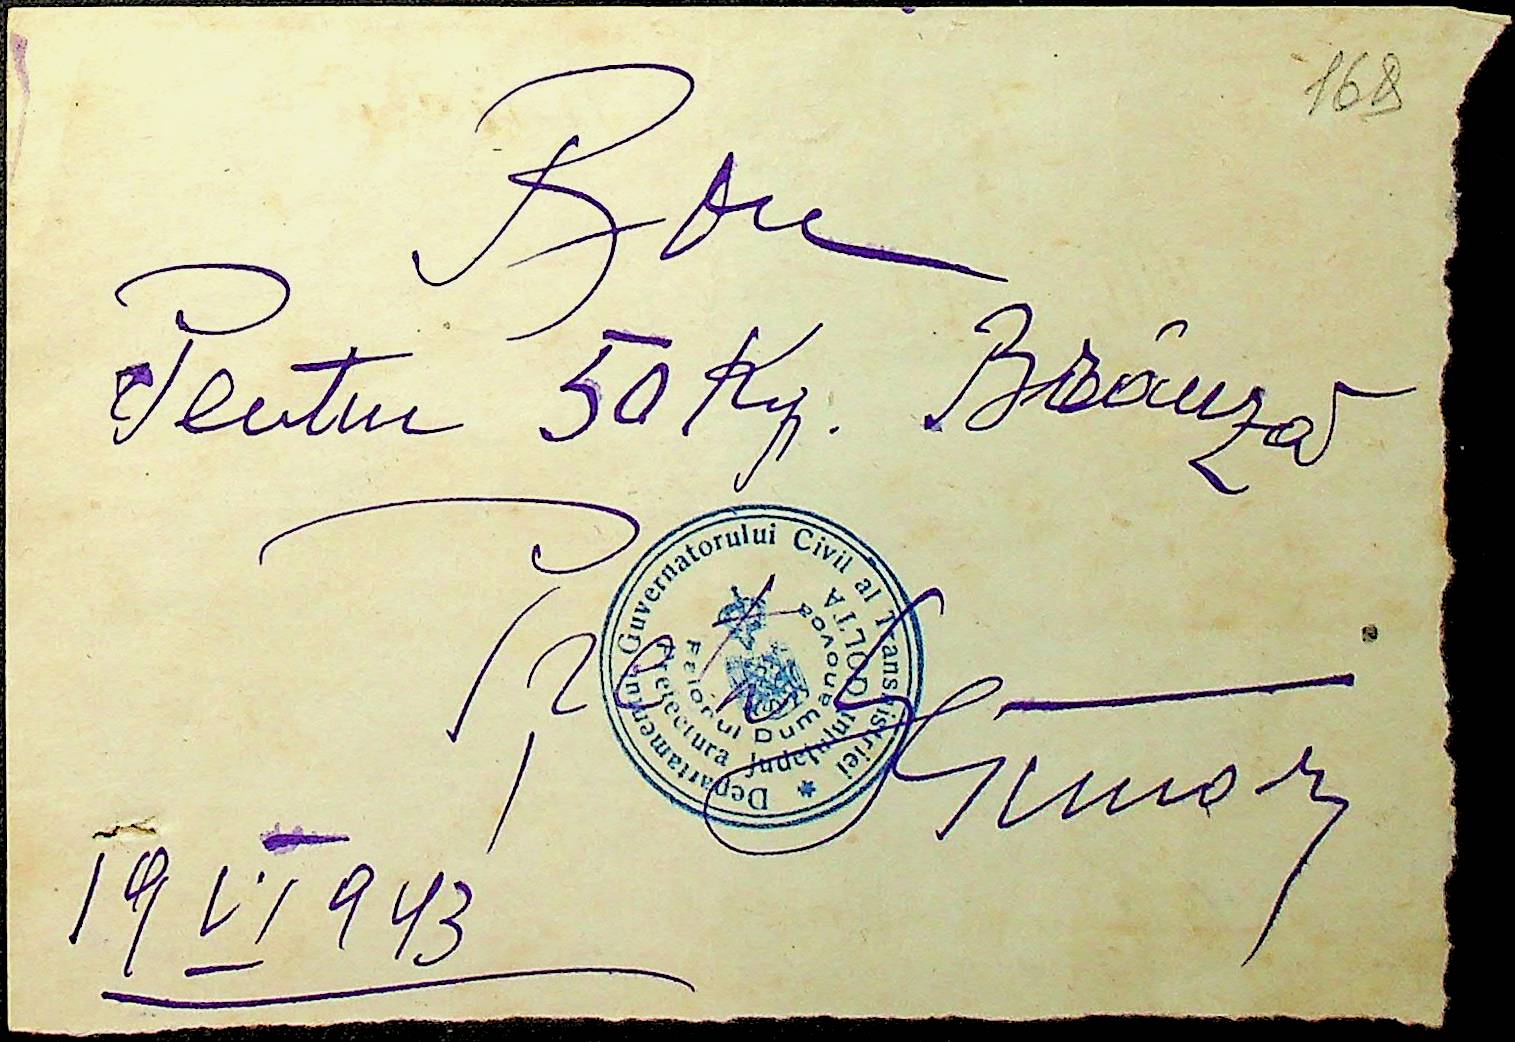 168
Bon
Pentru 50 Kg. Brânză
Departamentul Guvernatorului Civil al Transnistriei
Prefectura Județului GOLTA
Ferma Dumanovca
19 VI 943